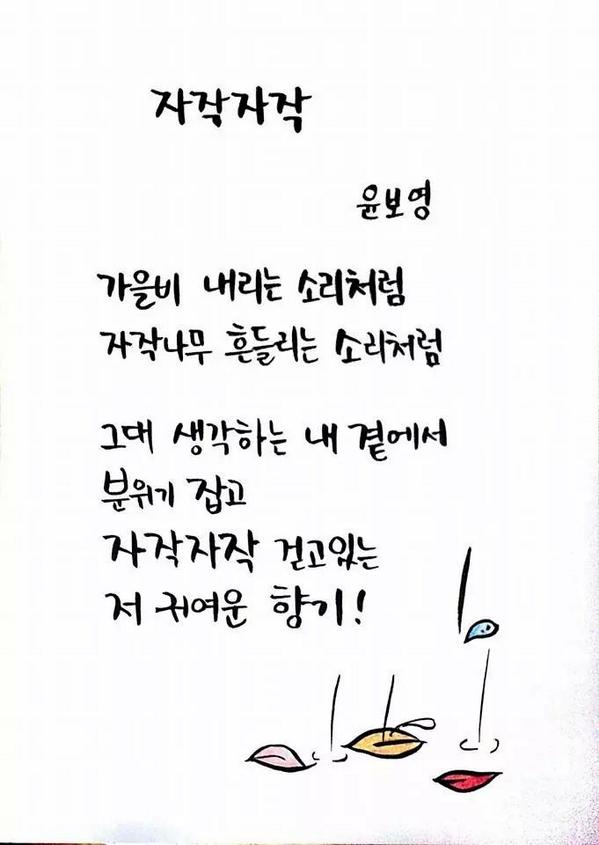 자작자작
윤보영
가을비 내리는 소리처럼
자작나무 흔들리는 소리처럼
그대 생각하는 내 곁에서
분위기 잡고
자작자작 걷고있는
저 귀여운 향기!